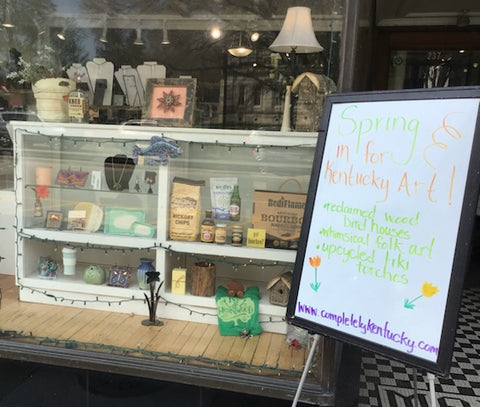 Spring
in for
Kentucky Art!
• reclaimed wood
bird houses
• whimsical folk art
• upcycled tiki
torches
www.completelykentucky.com
HICKORY
CHIPS
BOURBON
237